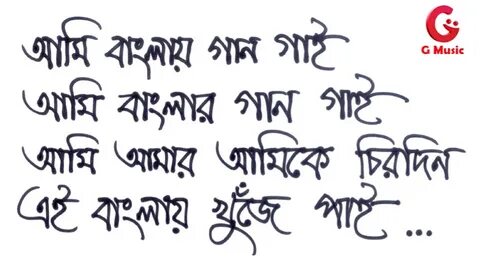 G Music
আমি বাংলায় গান গাই
আমি বাংলার গান গাই
আমি আমার আমিকে চিরদিন
এই বাংলায় খুঁজে পাই ...